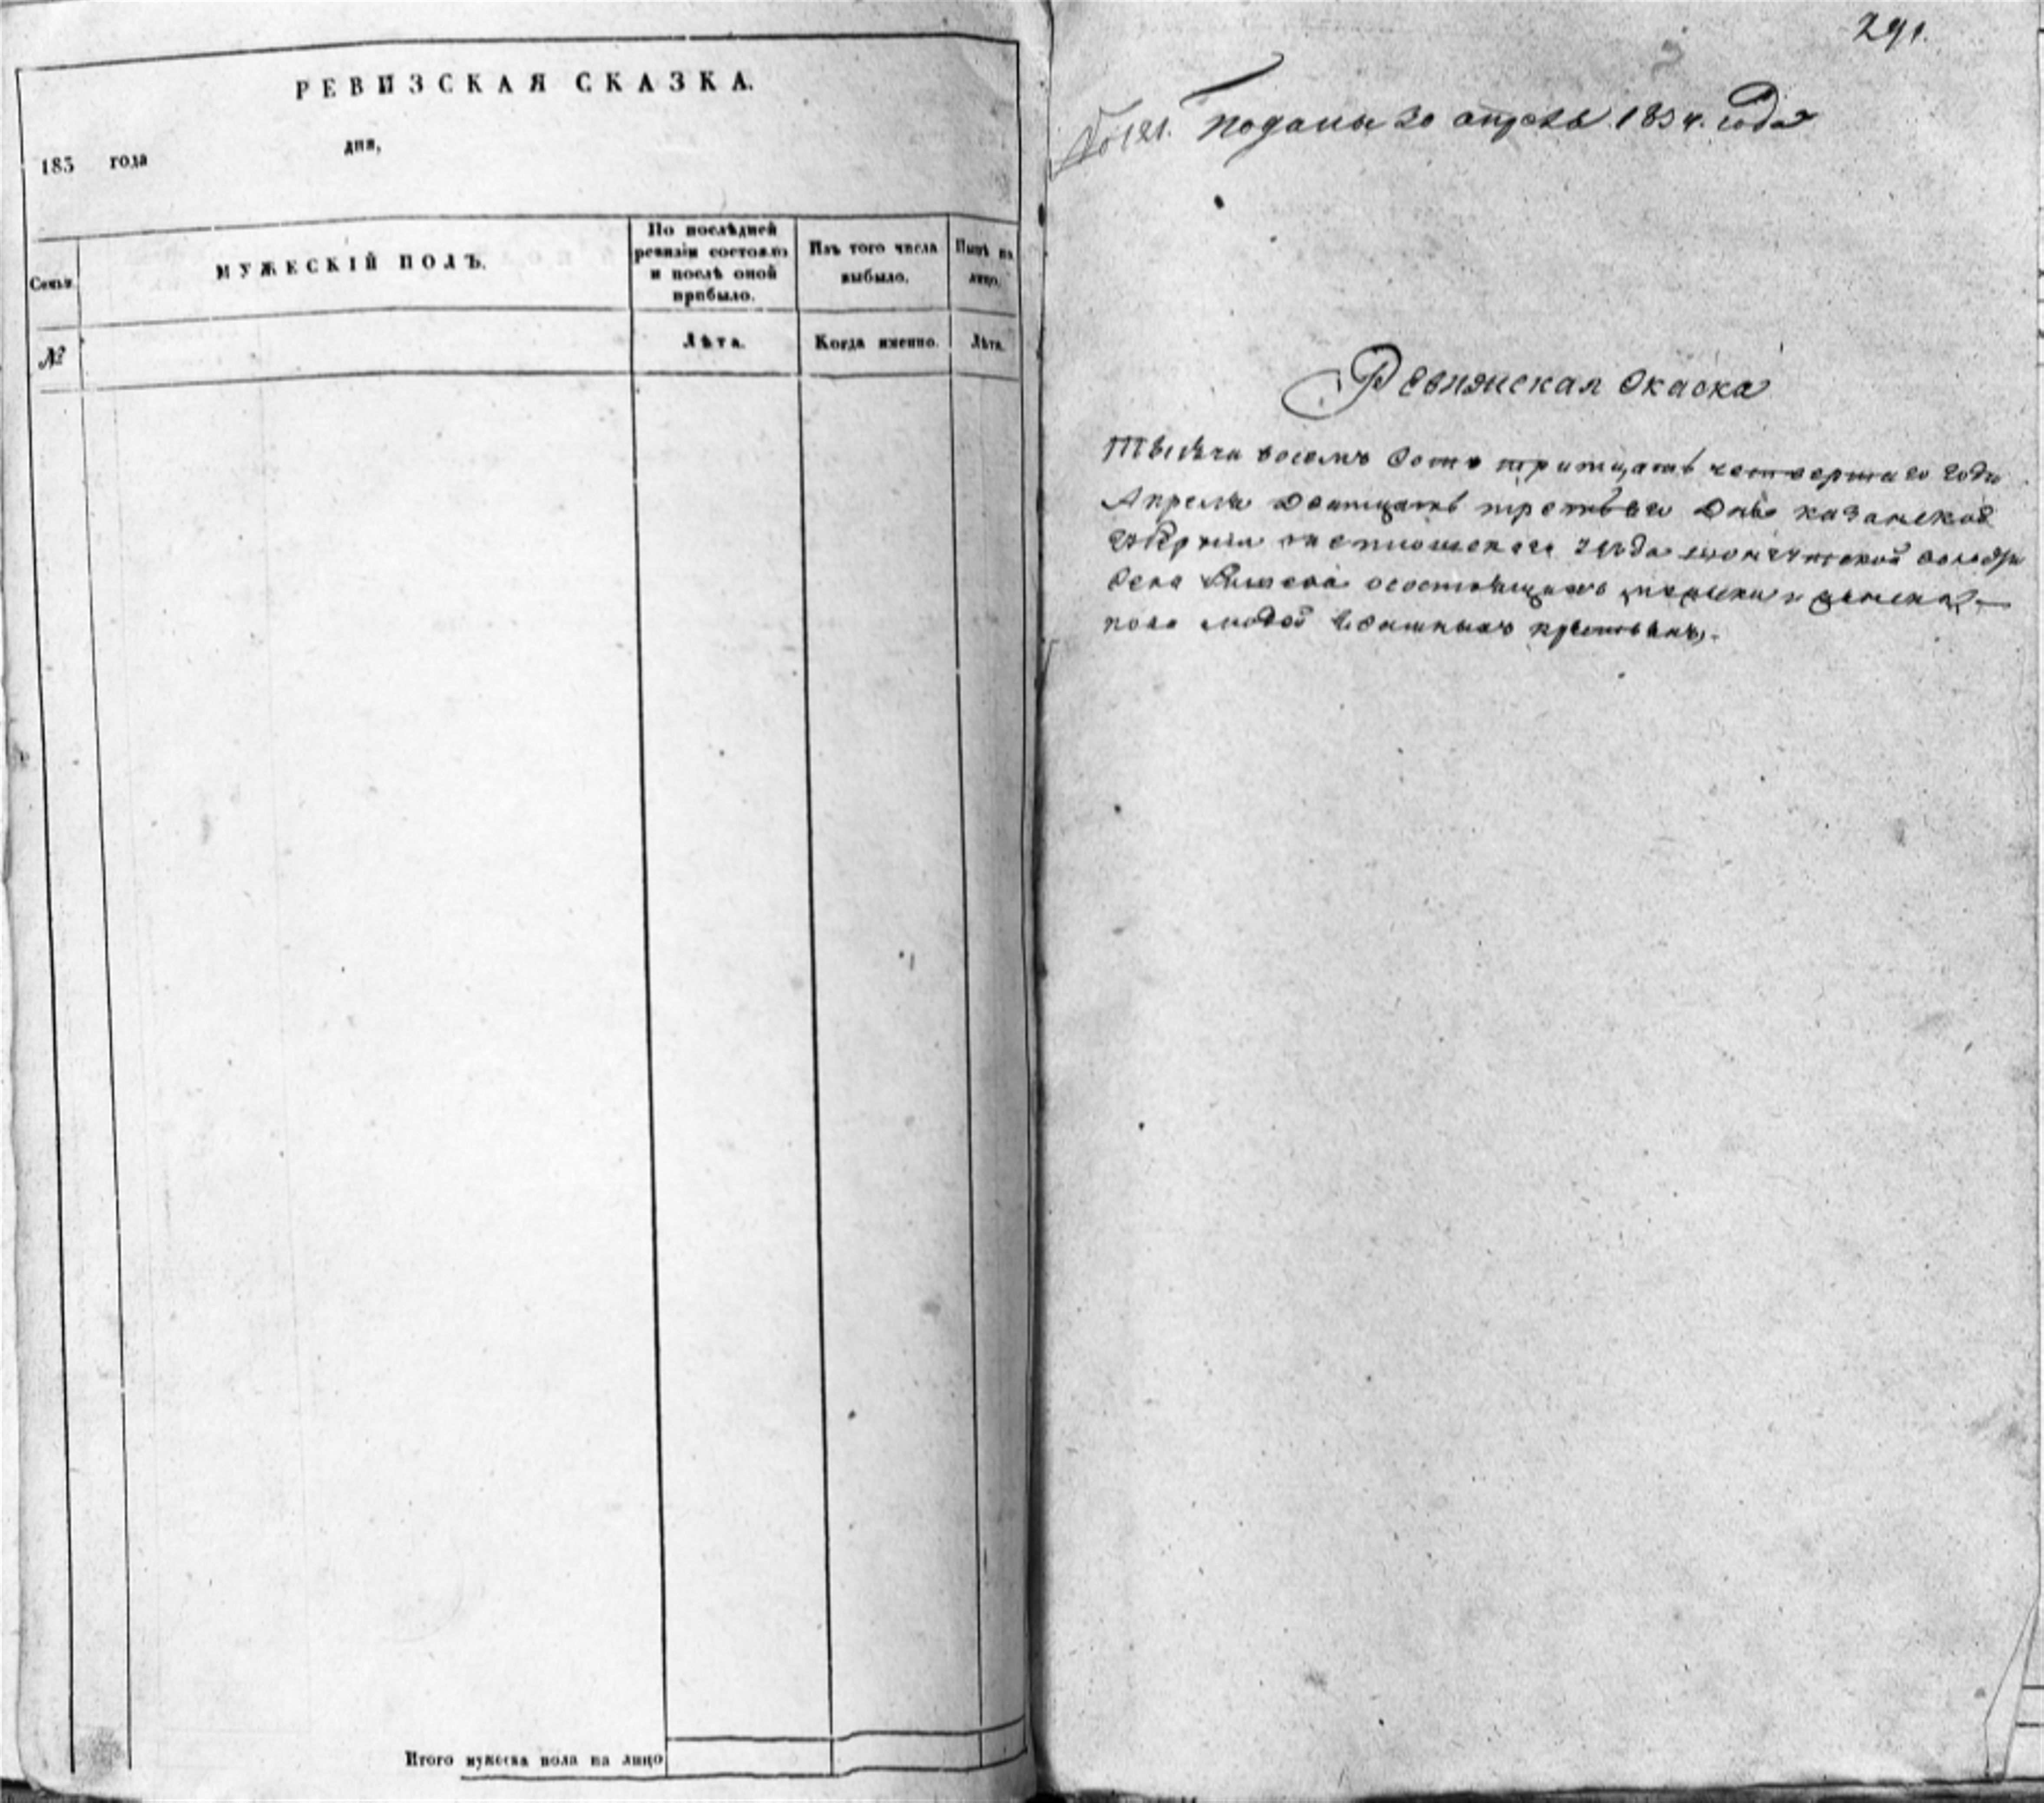 РЕВИЗСКАЯ СКАЗКА.
183 года дня,
Семьи.
МУЖЕСКІЙ ПОЛЪ.
По послѣдней ревизіи состояло и послѣ оной прибыло.
Изъ того числа выбыло.
Нынѣ на лицо.
№
Лѣта.
Когда именно.
Лѣта.
Итого мужеска пола на лицо
291.
№ 121. Поданы 20 апреля 1834. года
Ревижская Скаска
Тысяча восемь сотъ тритцать четвертаго года
Апреля дватцать третьяго дня казанской
губернии уезда
села состоящихъ мужеска и женска
пола людей крестьянъ.